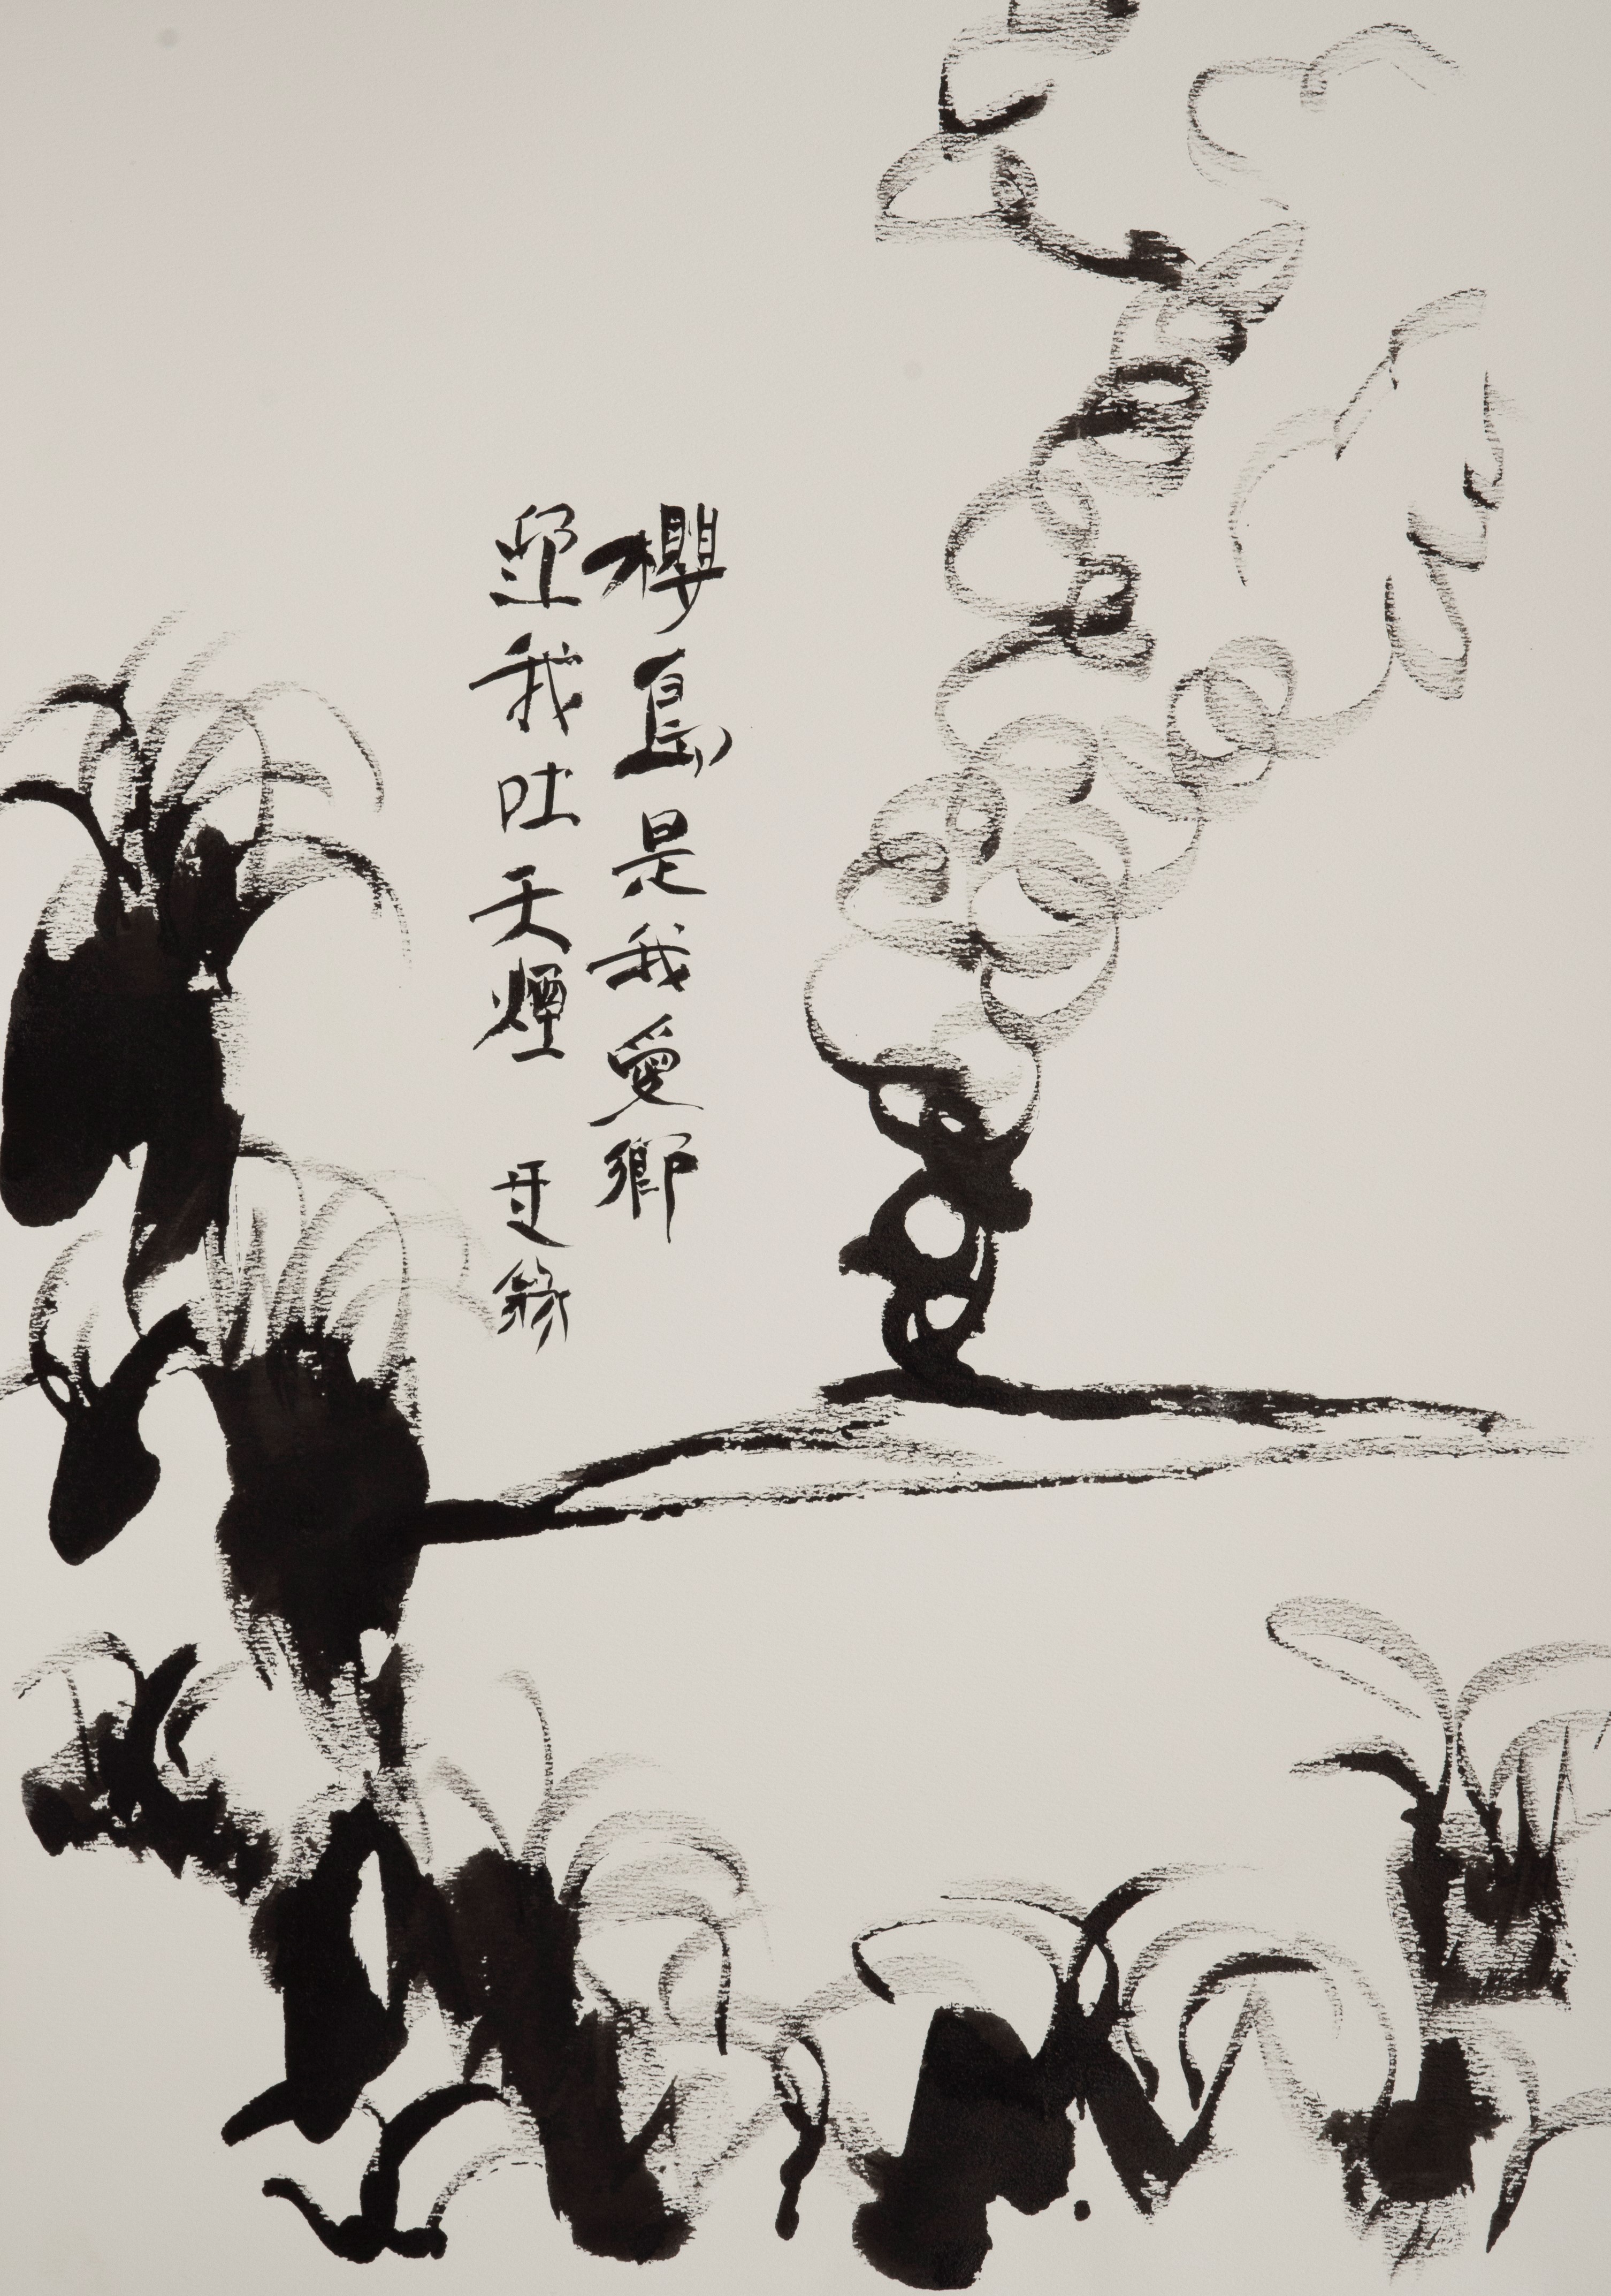 櫻島是我愛鄉
迎我吐天煙